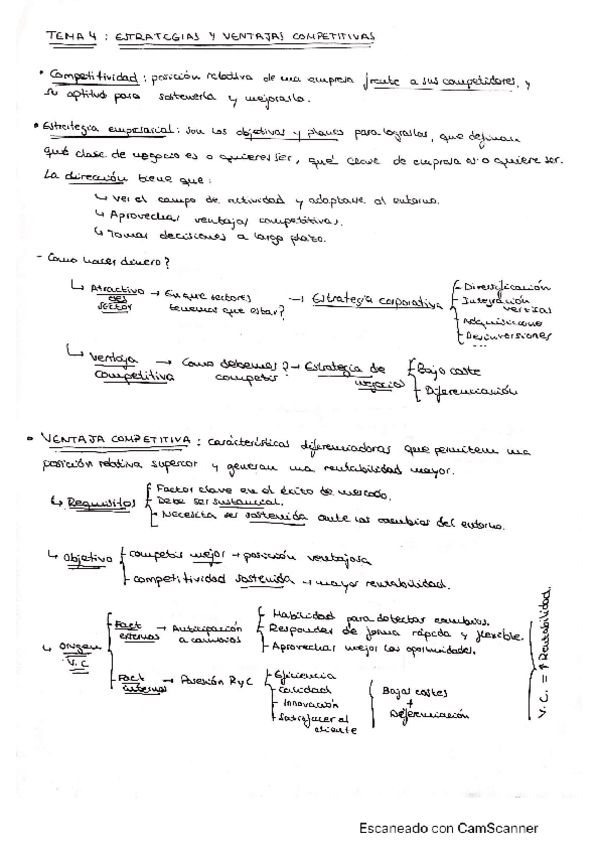 TEMA 4: ESTRATEGIAS Y VENTAJAS COMPETITIVAS
• Competitividad: posición relativa de una empresa frente a sus competidores, y
su aptitud para sostenerla y mejorarla.
• Estrategia empresarial: son los objetivos y planes para lograrlos, que definan
qué clase de negocio es o quiere ser, qué clase de empresa es o quiere ser.
La dirección tiene que:
↳ Ver el campo de actividad y adaptarse al entorno.
↳ Aprovechar ventajas competitivas.
↳ Tomar decisiones a largo plazo.
- Como hacer dinero?
↳ Atractivo del sector → En que sectores tenemos que estar? → Estrategia corporativa
- Diversificación
- Integración vertical
- Adquisiciones
- Desinversiones
↳ Ventaja competitiva → Como debemos competir? → Estrategia de negocios
- Bajo coste
- Diferenciación
• VENTAJA COMPETITIVA: características diferenciadoras que permiten una
posición relativa superior y generan una rentabilidad mayor.
↳ Requisitos
- Factor clave en el éxito de mercado.
- Debe ser sustancial.
- Necesita ser sostenida ante los cambios del entorno.
↳ Objetivo
- competir mejor → posición ventajosa
- competitividad sostenida → mayor rentabilidad.
↳ Origen V.C
- Fact externos → Anticipación a cambios
- Habilidad para detectar cambios.
- Responder de forma rápida y flexible.
- Aprovechar mejor las oportunidades.
- Fact internos → Posesión RyC
- Eficiencia
- Calidad
- Innovación
- Satisfacer al cliente
Bajos costes
+
Diferenciación
V.C. = ↑ Rentabilidad.
Escaneado con CamScanner